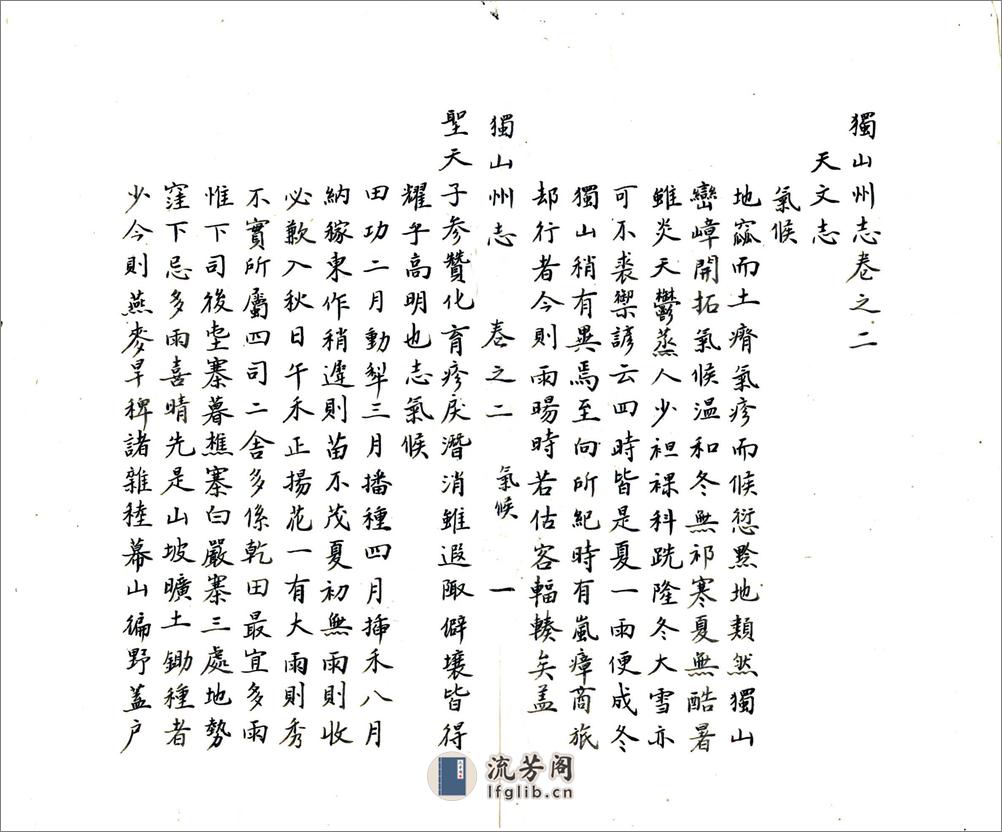 獨山州志卷之二
天文志
氣候
地窳而土瘠氣疹而候愆黔地類然獨山
巒嶂開拓氣候温和冬無祁寒夏無酷暑
雖炎天鬱蒸人少袒裸科跣隆冬大雪亦
可不裘禦諺云四時皆是夏一雨便成冬
獨山稍有異焉至向所紀時有嵐瘴商旅
却行者今則雨暘時若估客輻輳矣盖
獨山州志 卷之二 氣候 一
聖天子参贊化育疹戾潛消雖遐陬僻壤皆得
耀乎高明也志氣候
田功二月動犁三月播種四月揷禾八月
納稼東作稍遲則苗不茂夏初無雨則收
必歉入秋日午禾正揚花一有大雨則秀
不實所屬四司二舍多係乾田最宜多雨
惟下司後坐寨暮樵寨白嚴寨三處地勢
窪下忌多雨喜晴先是山坡曠土鋤種者
少今則燕麥旱稗諸雜稑幕山徧野蓋户
流芳阁
lfglib.cn